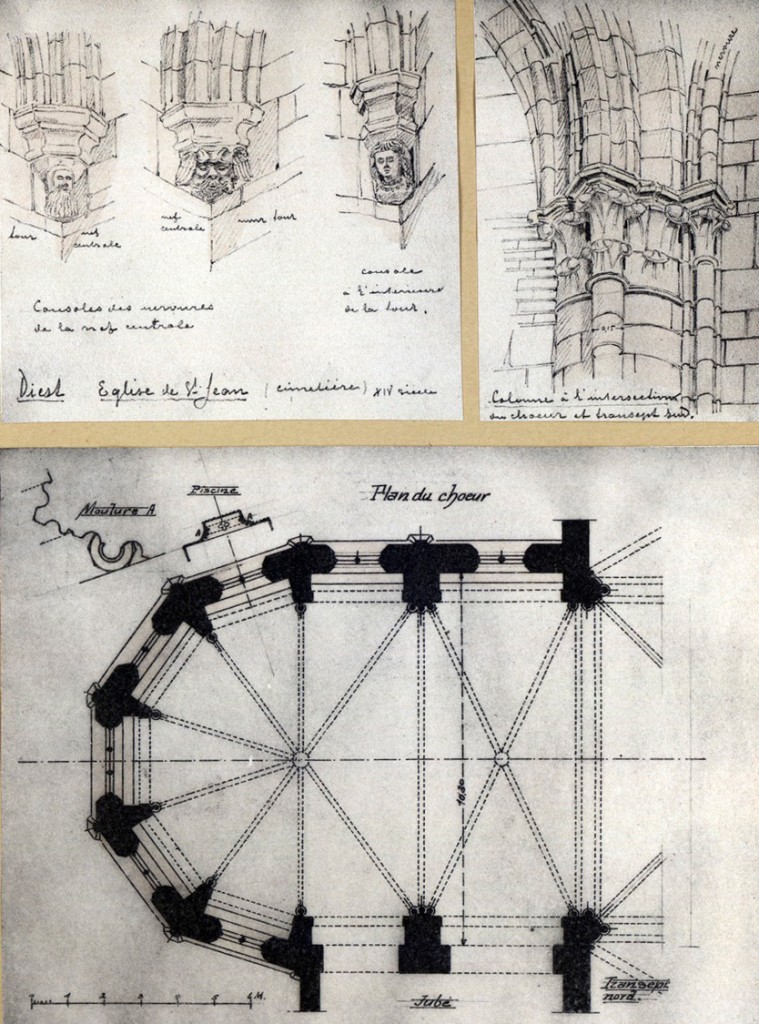 tour
nef
centrale
nef
centrale
tour
console
à l'intérieur
de la tour.
Consoles des nervures
de la nef centrale
Diest Eglise de St Jean (cimetière) XIV siècle
nervure
Colonne à l'intersection
du choeur et transept sud.
Moulure A
Piscine
Plan du choeur
A
A
10,80
Jubé
Transept
nord.
M.